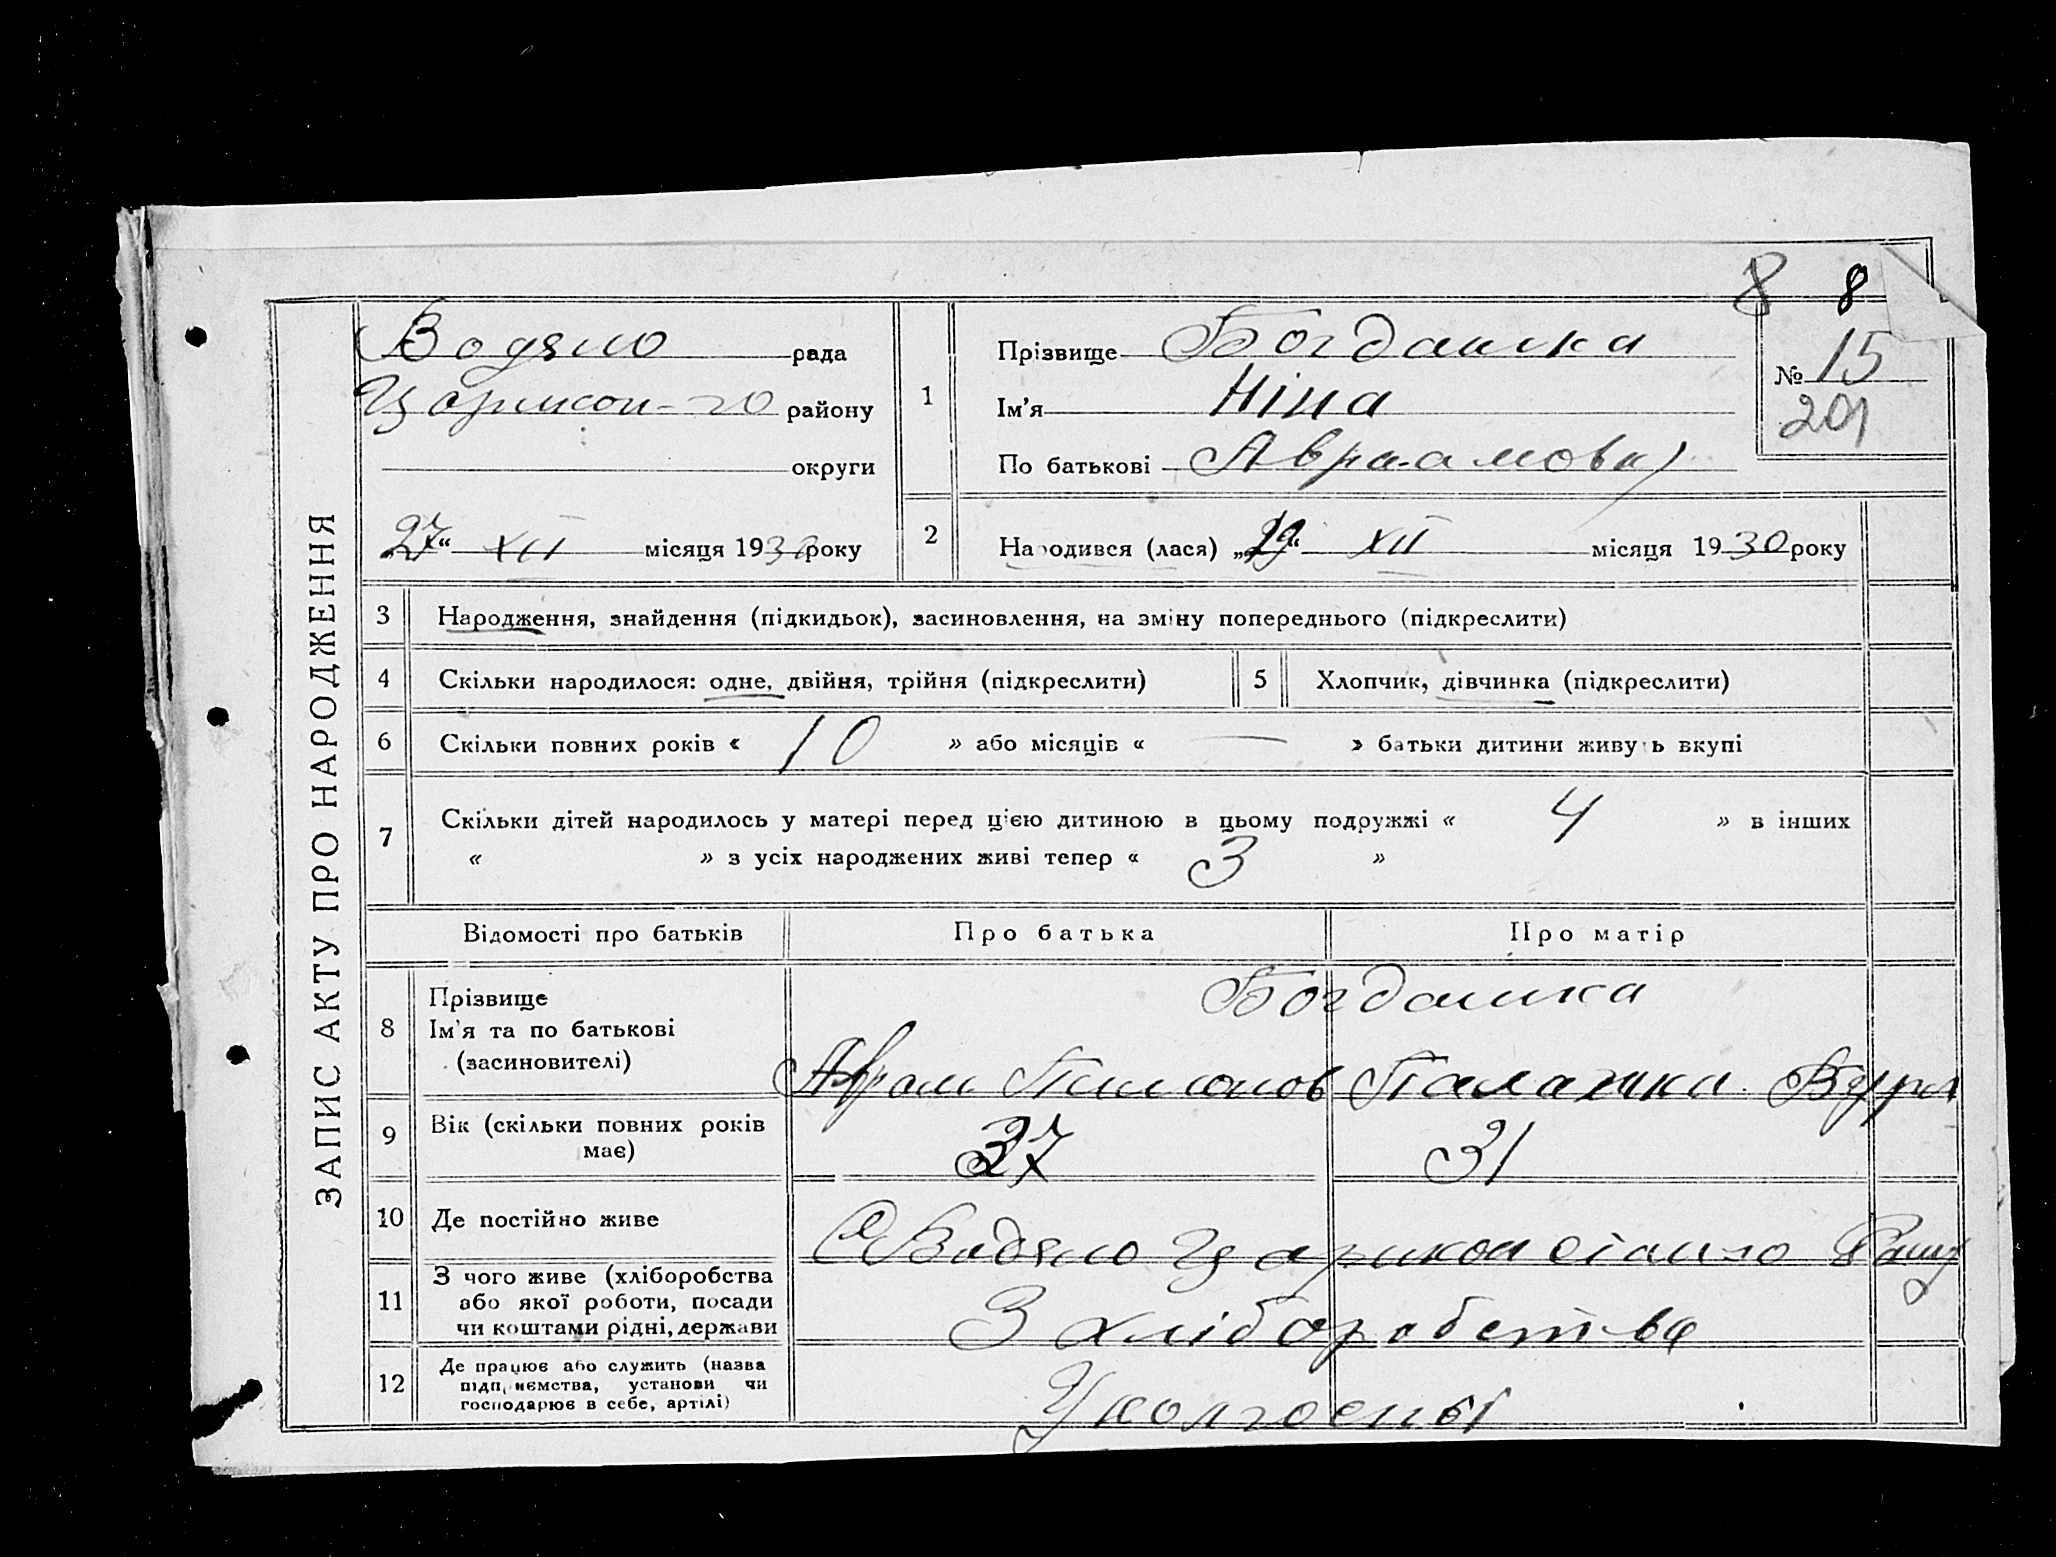 8 8
ЗАПИС АКТУ ПРО НАРОДЖЕННЯ
Водяно рада
района
округи
27 “ XII місяця 1930 року
1
Прізвище Богданка
Ім'я Ніна
По батькові Авраамовн
№ 15
201
2
Народився (лася) „ “ XII місяця 1930 року
3 Народження, знайдення (підкидьок), засиновлення, на зміну попереднього (підкреслити)
4 Скільки народилося: одне, двійня, трійня (підкреслити)
5 Хлопчик, дівчинка (підкреслити)
6 Скільки повних років « 10 » або місяців « — » батьки дитини живуть вкупі
7 Скільки дітей народилось у матері перед цією дитиною в цьому подружжі « 4 » в інших
« » з усіх народжених живі тепер « 3 »
Відомості про батьків Про батька Про матір
8 Прізвище
Ім'я та по батькові
(засиновителі)
Богданка
Аврам Палажка
9 Вік (скільки повних років
має)
37 31
10 Де постійно живе
С Водяно
11 З чого живе (хліборобства
або якої роботи, посади
чи коштами рідні, держави
З хліборобства
12 Де працює або служить (назва
підприємства, установи чи
господарює в себе, артілі)
У колгоспі